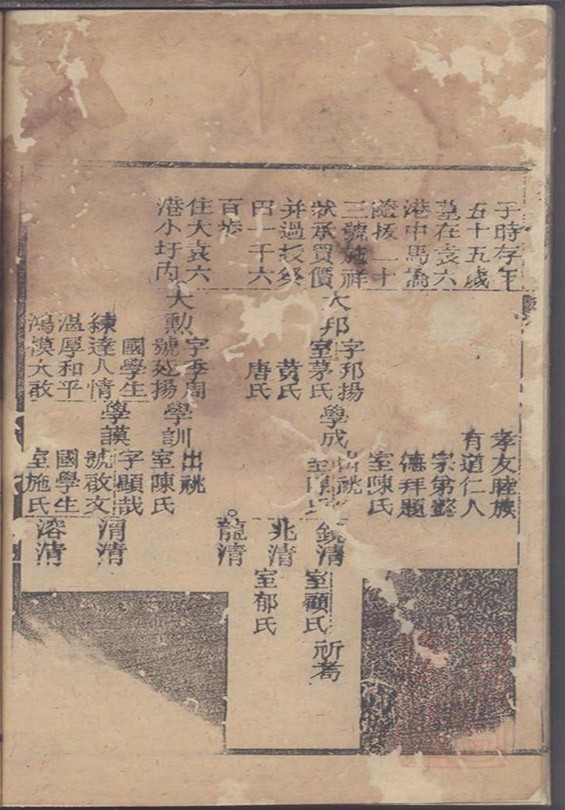 于時存年
五十五歲
墓在袁六
港中馬橋
隨扳二十
三號施祥
狀承買價
并過扳共
四一千六
百步
住大袁六
港小圩内
孝友睦族
有道仁人
宗弟鑿
德拜題
大邦
字邦揚
室茅氏
黃氏
唐氏
學成
出祧
室陳氏
鏡清
室顧氏
祈蒿
兆清
室郁氏
龍清
大勳
字季周
號廷揚
國學生
練達人情
溫厚和平
鴻漠大敢
學訓
出祧
室陳氏
學謨
字顯哉
號啟文
國學生
室施氏
渭清
溶清